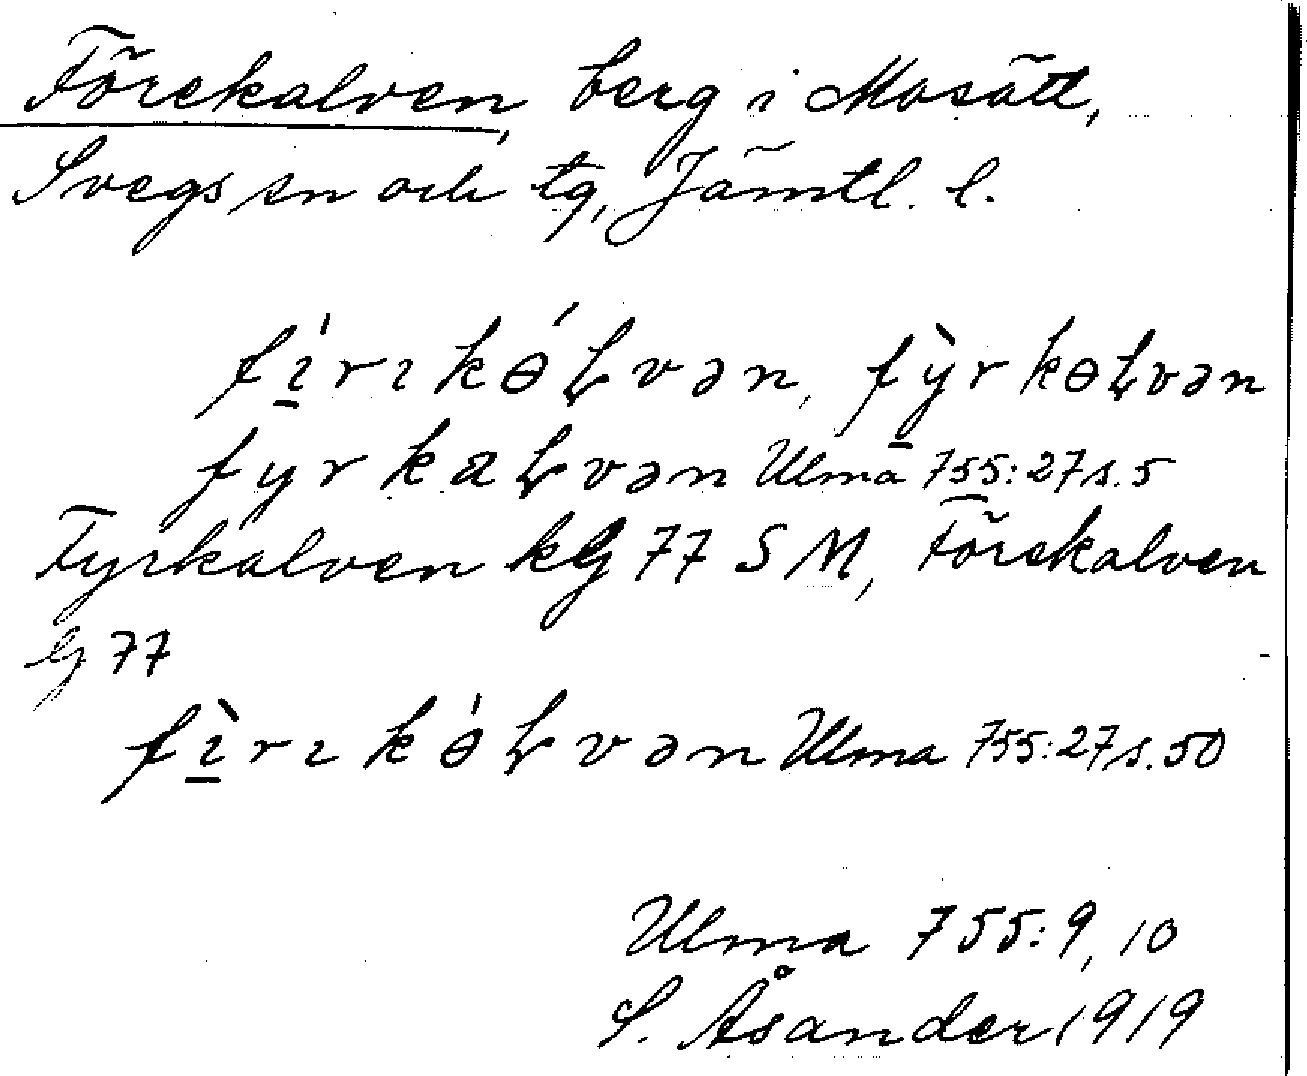 Förekalven, berg i Mosätt,
Svegs sn och tg, Jämtl. l.
fì̱rıkɵ́Ƚvən, fỳ̱rkɵȽvən
fyrkaȽvən Ulma 755:27 s. 5
Fyrkalven kG 77 S M, Förekalven
G 77
fì̱rıkɵ́Ƚvən Ulma 755:27 s. 50
Ulma 755:9, 10
S. Åsander 1919